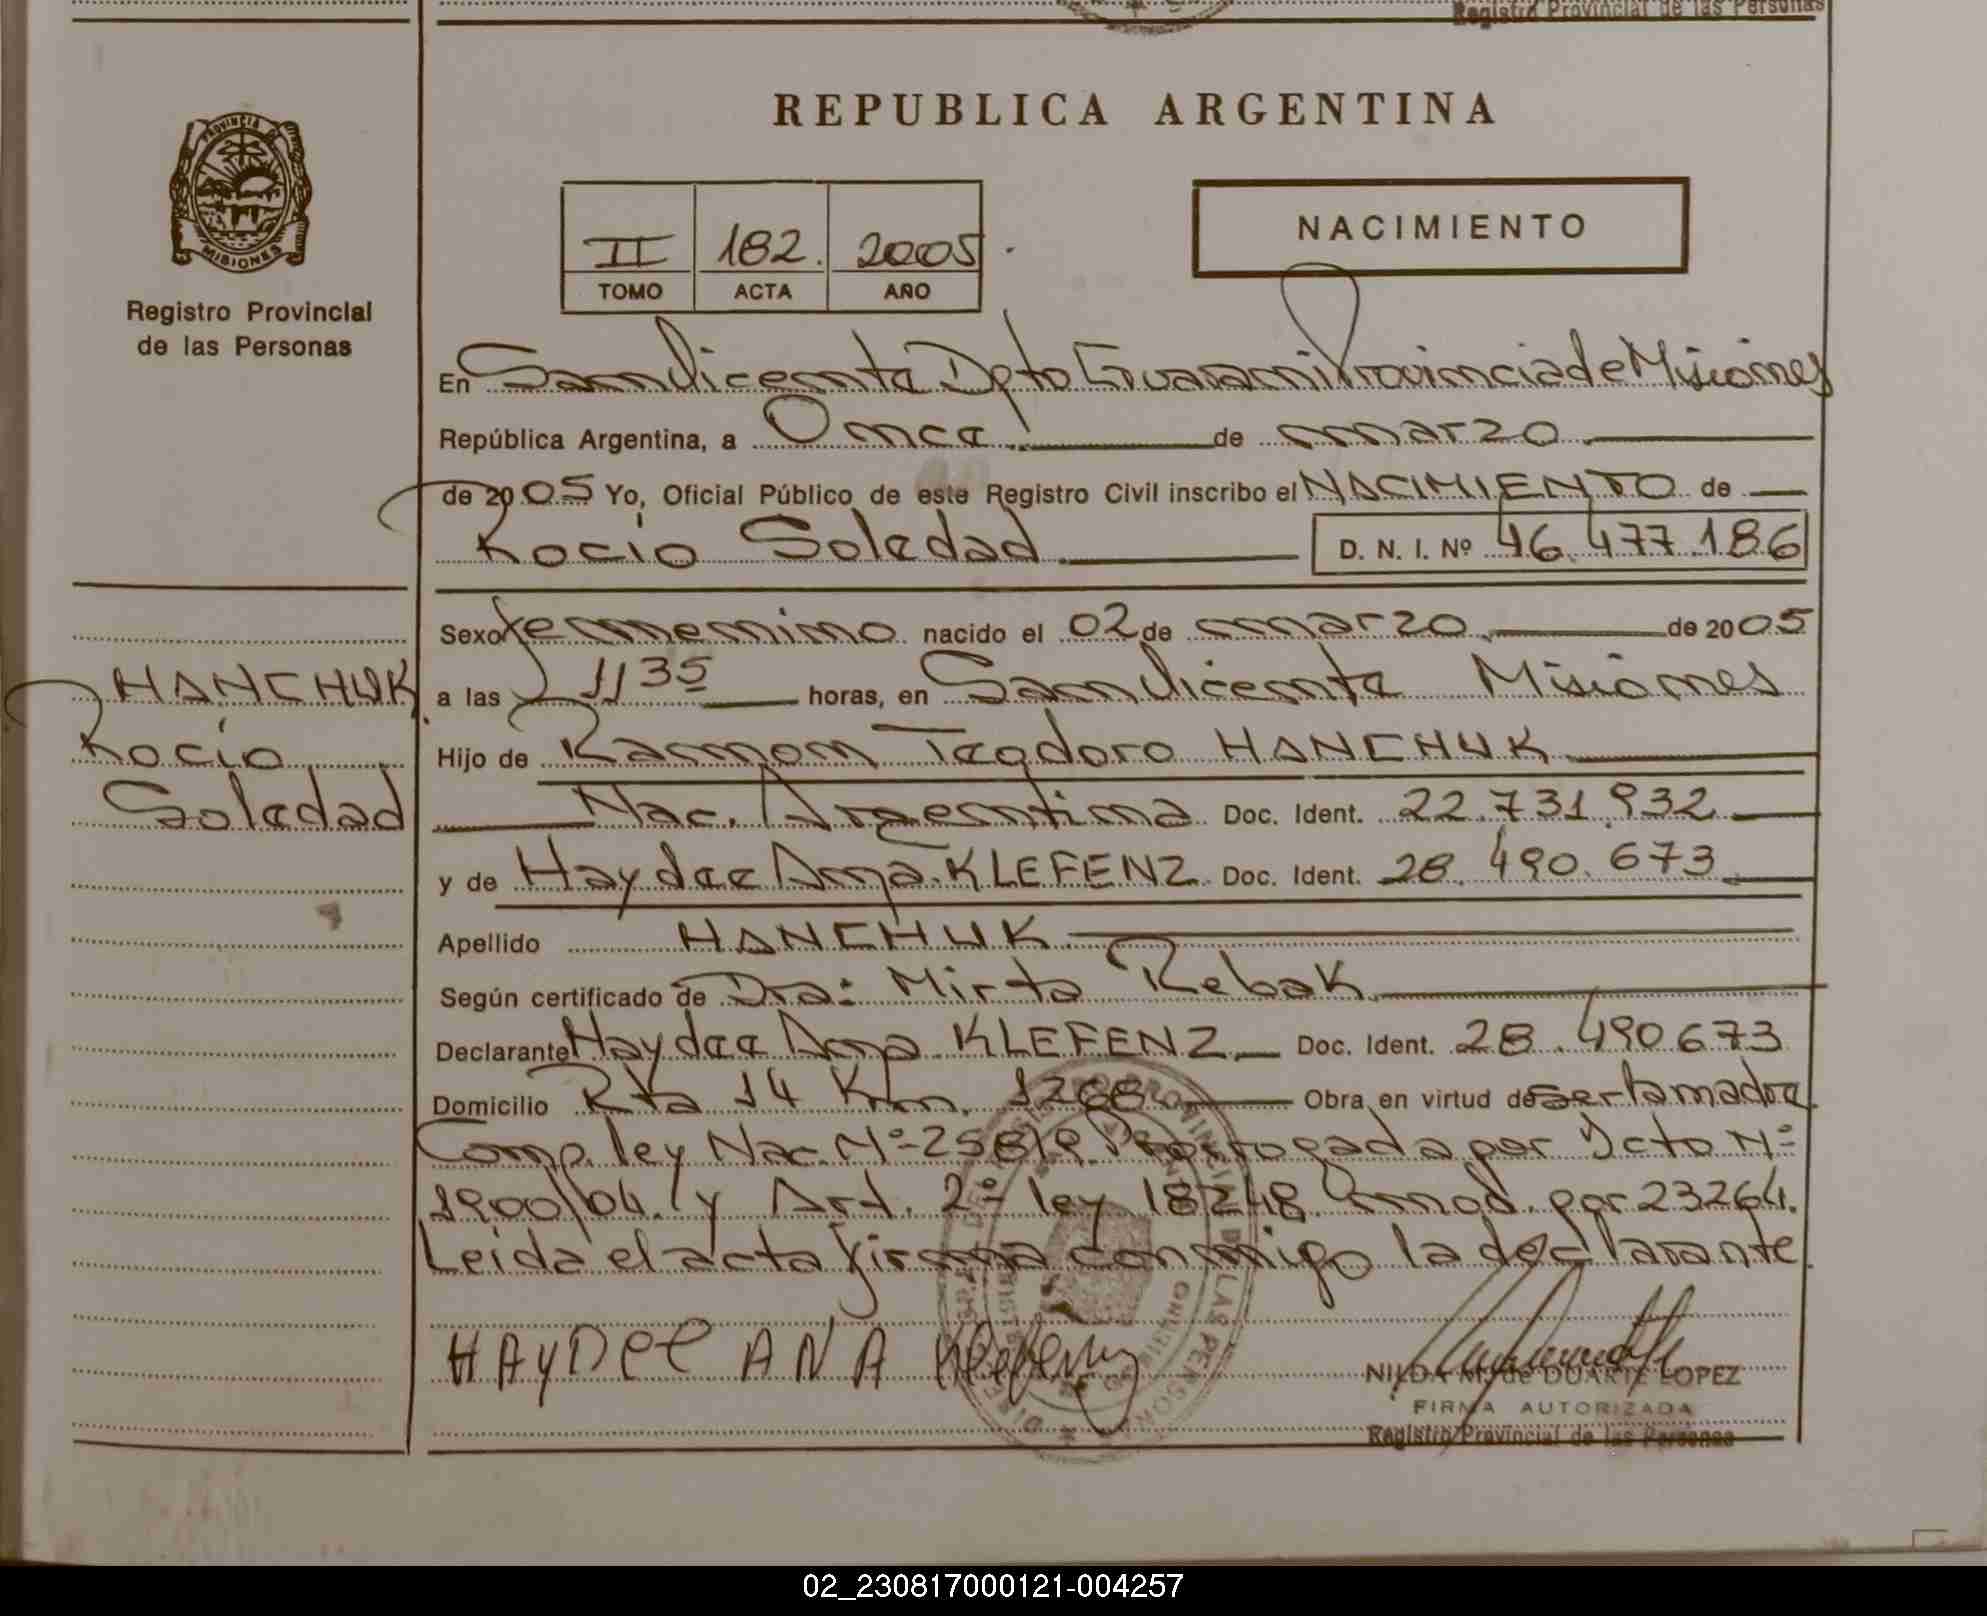 Registro Provincial de las Personas
PROVINCIA DE
MISIONES
Registro Provincial
de las Personas
REPUBLICA ARGENTINA
II 182. 2005.
TOMO ACTA AÑO
NACIMIENTO
En San Vicente Dpto Guarani Provincia de Misiones
República Argentina, a Once de marzo
de 2005 Yo, Oficial Público de este Registro Civil inscribo el NACIMIENTO de
Rocio Soledad D. N. I. Nº 46.477.186
Sexo femenino nacido el 02 de marzo de 2005
a las 1135 horas, en San Vicente Misiones
Hijo de Ramon Teodoro HANCHUK
Nac. Argentina Doc. Ident. 22.731.932
y de Haydee Ana KLEFENZ Doc. Ident. 28.490.673
Apellido HANCHUK
Según certificado de Dra: Mirta Rebak
Declarante Haydee Ana KLEFENZ Doc. Ident. 28.490673
Domicilio Rta 14 Km. 1268 Obra en virtud de ser la madre
Comp. ley Nac. Nº 25819. Prorrogada por Dcto Nº
1900/04. y Art. 2º ley 18248 mod. por 23264.
Leida el acta firma conmigo la declarante
HANCHUK
Rocio
Soledad
HAYDEE ANA Klefenz
NILDA M. de DUARTE LOPEZ
FIRMA AUTORIZADA
Registro Provincial de las Personas
02_230817000121-004257